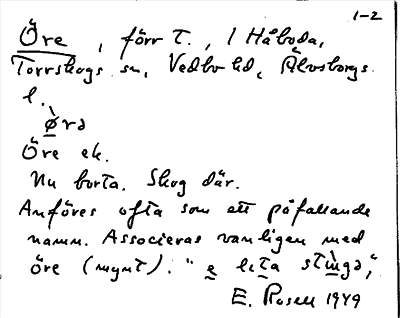 1-2
Öre, förr t., 1 Håboda,
Torrskogs sn, Vedbo hd, Älvsborgs
l.
ø̀rə
Öre ek.
Nu borta. Skog där.
Anföres ofta som ett påfallande
namn. Associeras vanligen med
öre (mynt). "e lita stìŋgə",
E. Rosell 1949